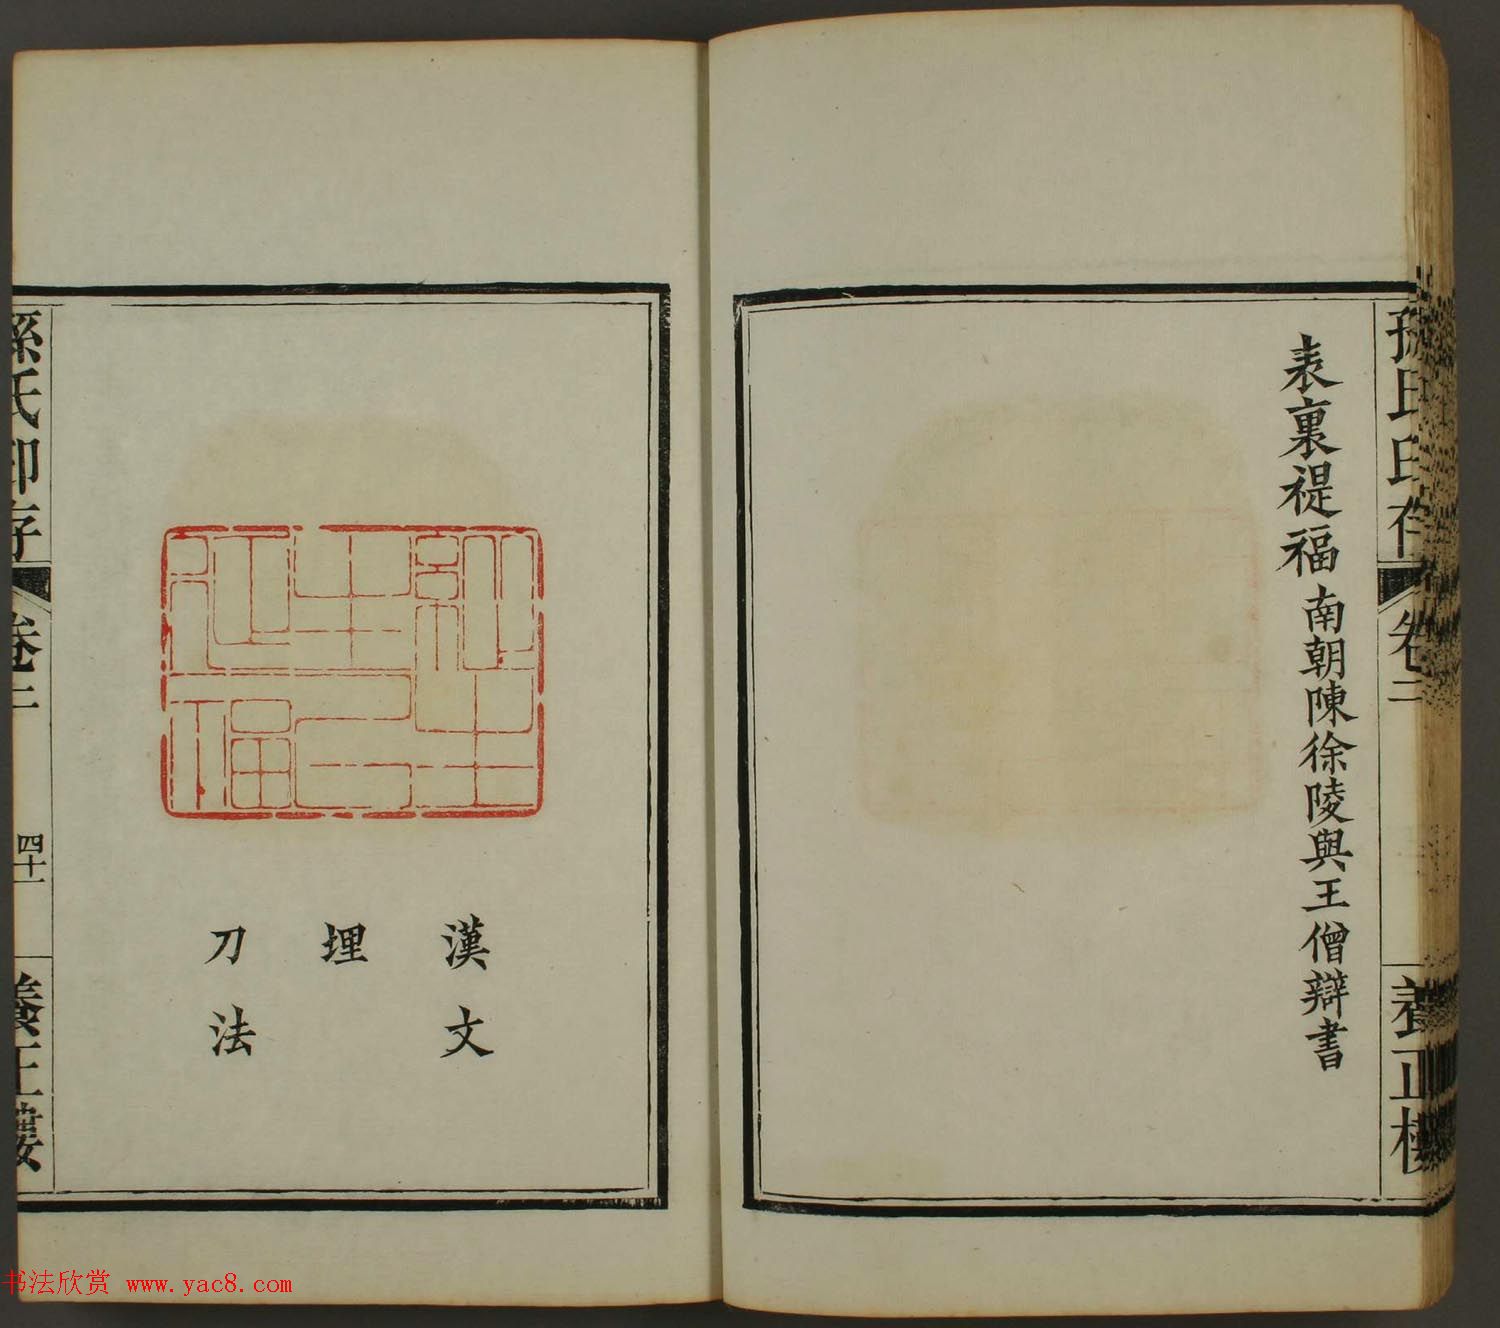 孫氏印存
卷二
養正樓
表裏禔福 南朝陳徐陵與王僧辯書
漢文
埋
刀法
孫氏印存
卷二
四十一
養正樓
书法欣赏 www.yac8.com